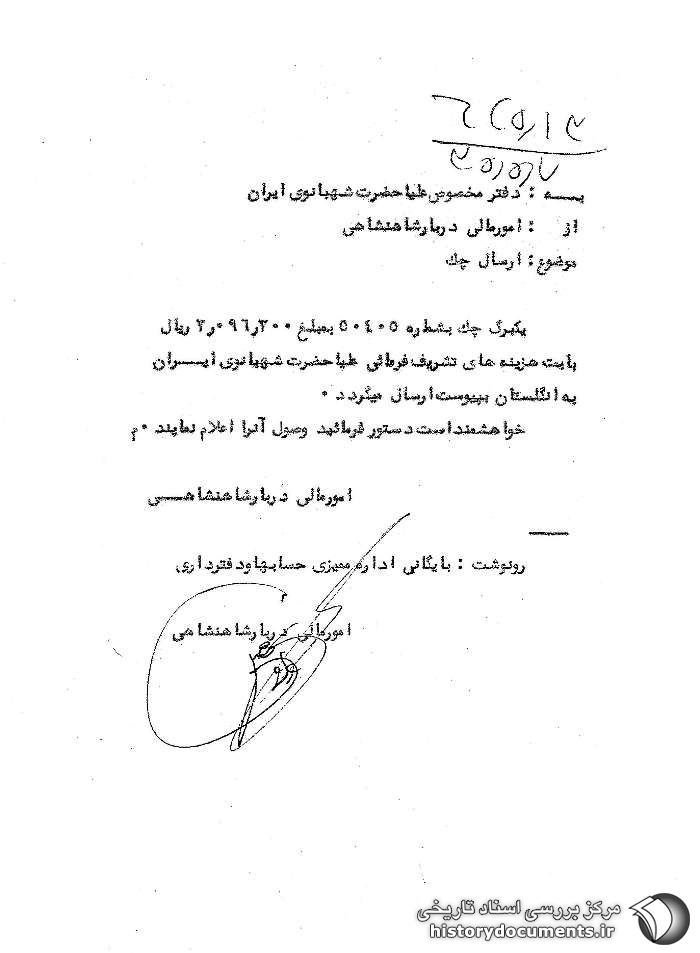 بــه : دفتر مخصوص علیا حضرت شهبانوی ایران
از : امور مالی دربار شاهنشاهی
موضوع : ارسال چك
یکبرگ چك بشماره ۵۰٤۰۵ بمبلغ ۲٫۰۹٦٫۲۰۰ ریال
بابت هزینه های تشریف فرمائی علیا حضرت شهبانوی ایــران
به انگلستان بپیوست ارسال میگردد ۰
خواهشمند است دستور فرمائید وصول آنرا اعلام نمایند ۰م
امور مالی دربار شاهنشاهــی
رونوشت : بایگانی اداره ممیزی حسابها و دفترداری
امور مالی دربار شاهنشاهی
مرکز بررسی اسناد تاریخی
historydocuments.ir